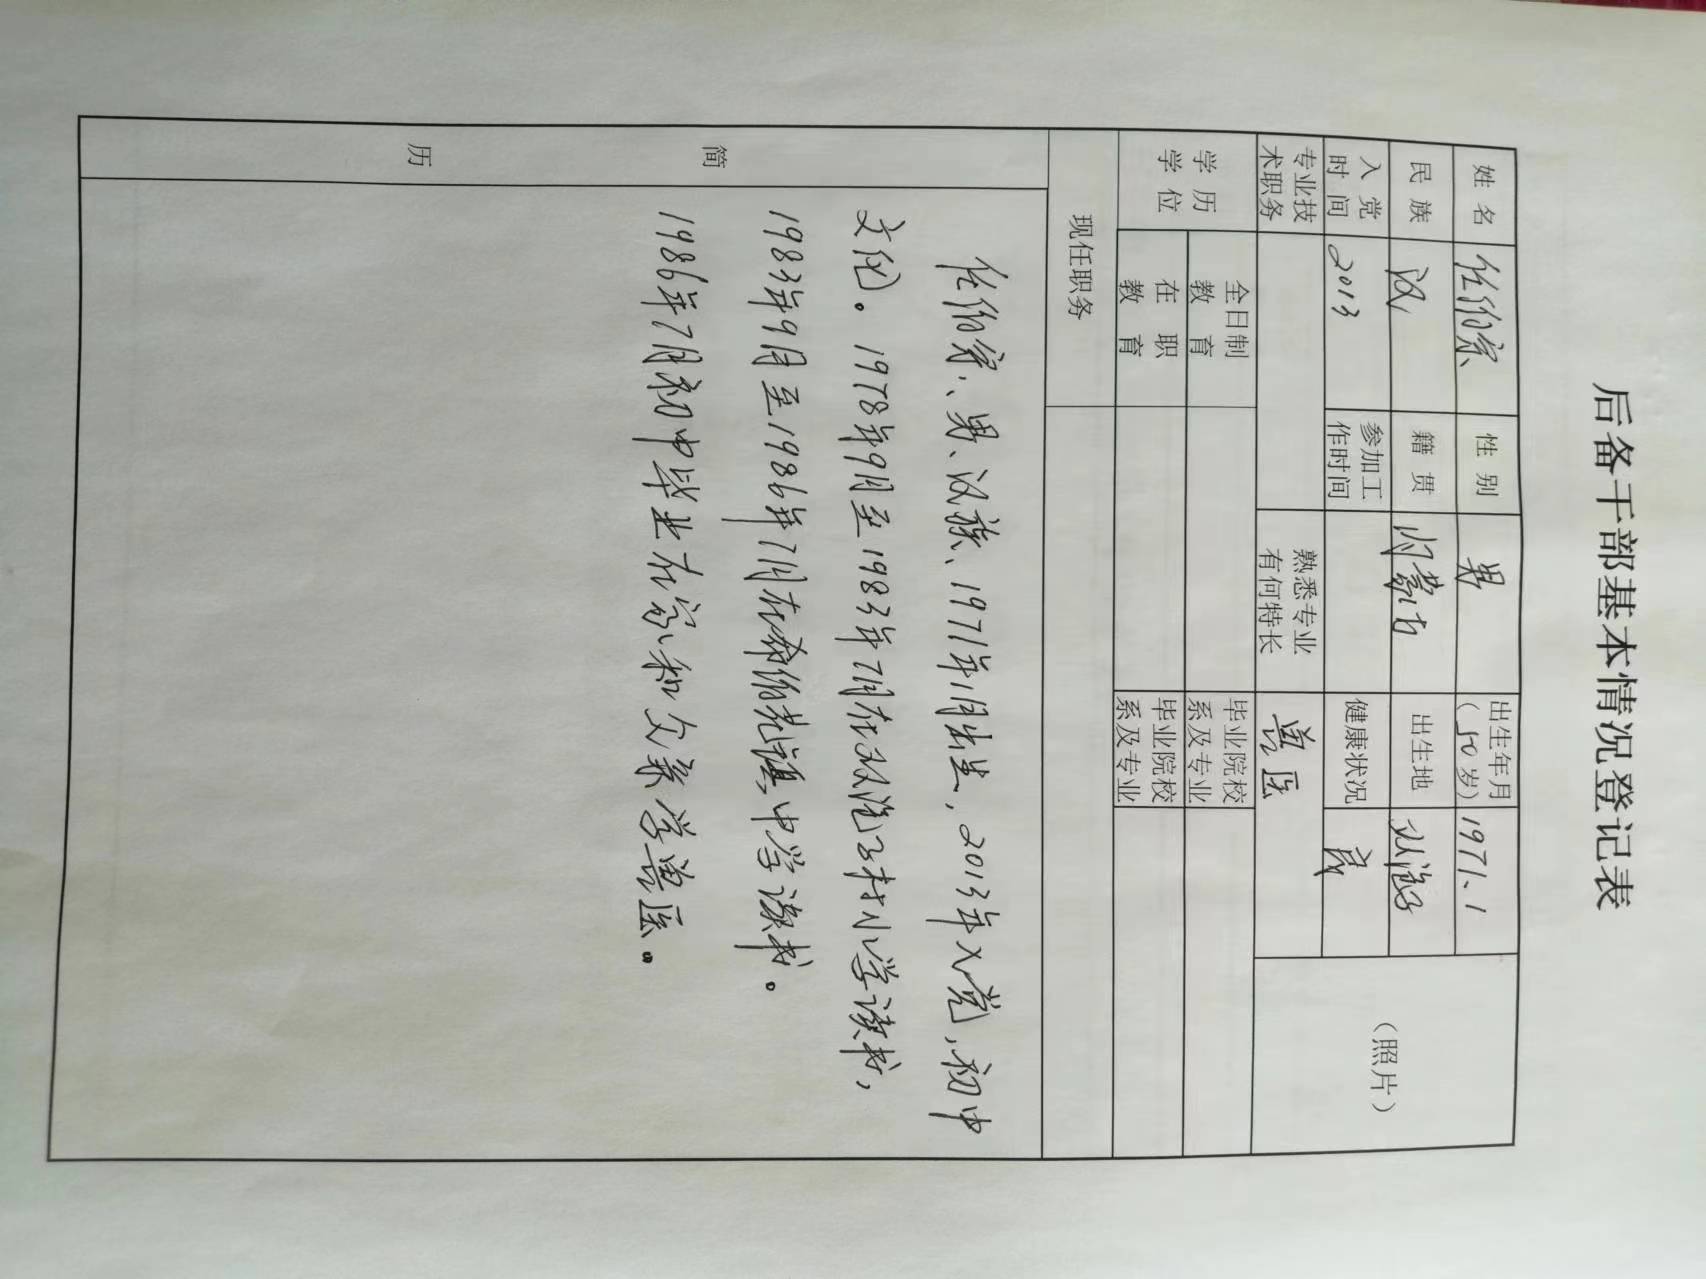 后备干部基本情况登记表
姓 名 任 性 别 男 出生年月(50岁) 1971.1
民 族 汉 籍 贯 内蒙古 出生地
入党时间 2013 参加工作时间 健康状况 良
(照片)
专业技术职务 熟悉专业有何特长 兽医
学 历 学 位 全日制教 育 毕业院校系及专业
在 职教 育 毕业院校系及专业
现任职务
简 历
任 、男、汉族、1971年1月出生,2013年入党,初中
文化。1978年9月至1983年7月在双 子村小学读书,
1983年9月至1986年7月在 镇中学读书。
1986年7月初中毕业在家和父亲学兽医。